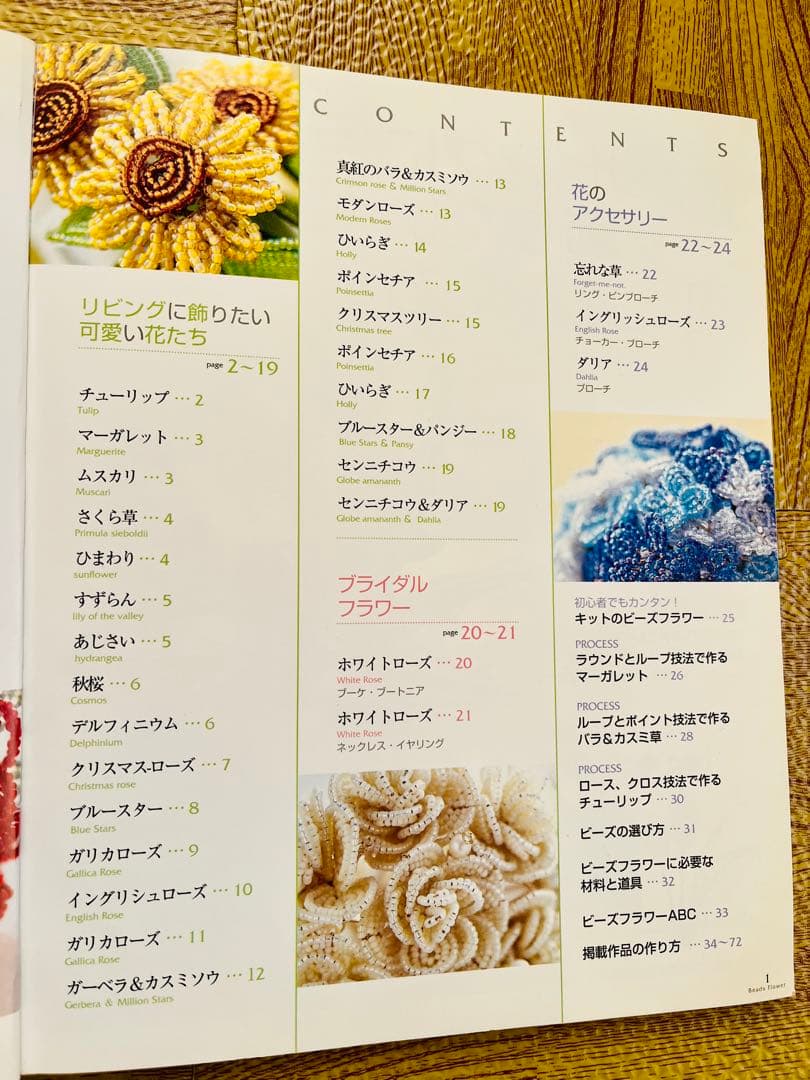 CONTENTS
リビングに飾りたい
可愛い花たち
page 2〜19
チューリップ … 2
Tulip
マーガレット … 3
Marguerite
ムスカリ … 3
Muscari
さくら草 … 4
Primula sieboldii
ひまわり … 4
sunflower
すずらん … 5
lily of the valley
あじさい … 5
hydrangea
秋桜 … 6
Cosmos
デルフィニウム … 6
Delphinium
クリスマス-ローズ … 7
Christmas rose
ブルースター … 8
Blue Stars
ガリカローズ … 9
Gallica Rose
イングリシュローズ … 10
English Rose
ガリカローズ … 11
Gallica Rose
ガーベラ&カスミソウ … 12
Gerbera & Million Stars
真紅のバラ&カスミソウ … 13
Crimson rose & Million Stars
モダンローズ … 13
Modern Roses
ひいらぎ … 14
Holly
ポインセチア … 15
Poinsettia
クリスマスツリー … 15
Christmas tree
ポインセチア … 16
Poinsettia
ひいらぎ … 17
Holly
ブルースター&パンジー … 18
Blue Stars & Pansy
センニチコウ … 19
Globe amananth
センニチコウ&ダリア … 19
Globe amananth & Dahlia
ブライダル
フラワー
page 20〜21
ホワイトローズ … 20
White Rose
ブーケ・ブートニア
ホワイトローズ … 21
White Rose
ネックレス・イヤリング
花の
アクセサリー
page 22〜24
忘れな草 … 22
Forget-me-not.
リング・ピンブローチ
イングリッシュローズ … 23
English Rose
チョーカー・ブローチ
ダリア … 24
Dahlia
ブローチ
初心者でもカンタン!
キットのビーズフラワー … 25
PROCESS
ラウンドとループ技法で作る
マーガレット … 26
PROCESS
ループとポイント技法で作る
バラ&カスミ草 … 28
PROCESS
ロース、クロス技法で作る
チューリップ … 30
ビーズの選び方 … 31
ビーズフラワーに必要な
材料と道具 … 32
ビーズフラワーABC … 33
掲載作品の作り方 … 34〜72
1
Beads Flower